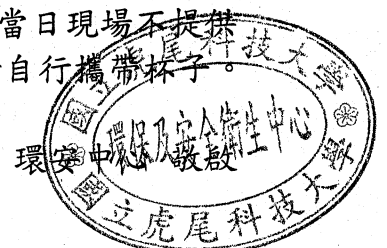 當日現場不提供
自行攜帶杯子。
環安中心 敬啟
國立虎尾科技大學
環保及安全衛生中心
國立虎尾科技大學